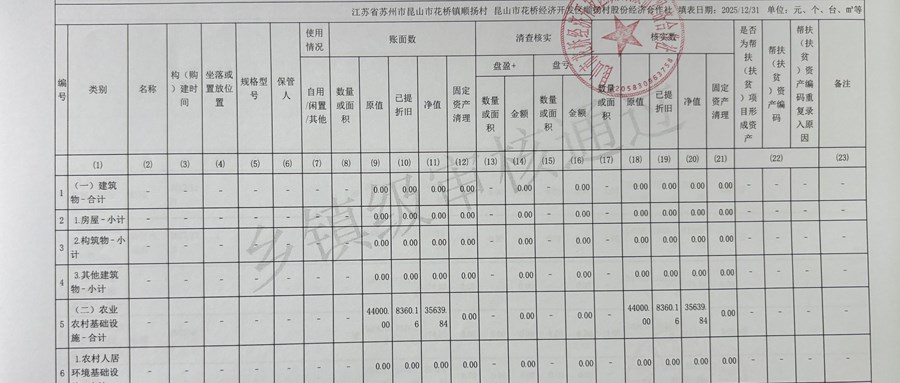 江苏省苏州市昆山市花桥镇顺扬村 昆山市花桥经济开发区顺扬村股份经济合作社 填表日期：2025/12/31 单位：元、个、台、㎡等
编号 类别 名称 构（购）建时间 坐落或置放位置 规格型号 保管人 使用情况 账面数 清查核实 核实数 是否为帮扶（扶贫）项目形成资产 帮扶（扶贫）资产编码 帮扶（扶贫）资产编码重复录入原因 备注
盘盈+ 盘亏-
自用/闲置/其他 数量或面积 原值 已提折旧 净值 固定资产清理 数量或面积 金额 数量或面积 金额 数量或面积 原值 已提折旧 净值 固定资产清理
(1) (2) (3) (4) (5) (6) (7) (8) (9) (10) (11) (12) (13) (14) (15) (16) (17) (18) (19) (20) (21) (22) (23)
1 （一）建筑物-合计 - - - - - - - 0.00 0.00 0.00 0.00 - 0.00 - 0.00 - 0.00 0.00 0.00 0.00 - - - -
2 1.房屋-小计 - - - - - - - 0.00 0.00 0.00 0.00 - 0.00 - 0.00 - 0.00 0.00 0.00 0.00 - - - -
3 2.构筑物-小计 - - - - - - - 0.00 0.00 0.00 0.00 - 0.00 - 0.00 - 0.00 0.00 0.00 0.00 - - - -
4 3.其他建筑物-小计 - - - - - - - 0.00 0.00 0.00 0.00 - 0.00 - 0.00 - 0.00 0.00 0.00 0.00 - - - -
5 （二）农业农村基础设施-合计 - - - - - - - 44000.00 8360.16 35639.84 0.00 - 0.00 - 0.00 - 44000.00 8360.16 35639.84 0.00 - - - -
6 1.农村人居环境基础设 - - - - - - - 0.00 0.00 0.00 0.00 - 0.00 - 0.00 - 0.00 0.00 0.00 0.00 - - - -
乡镇级审核通过